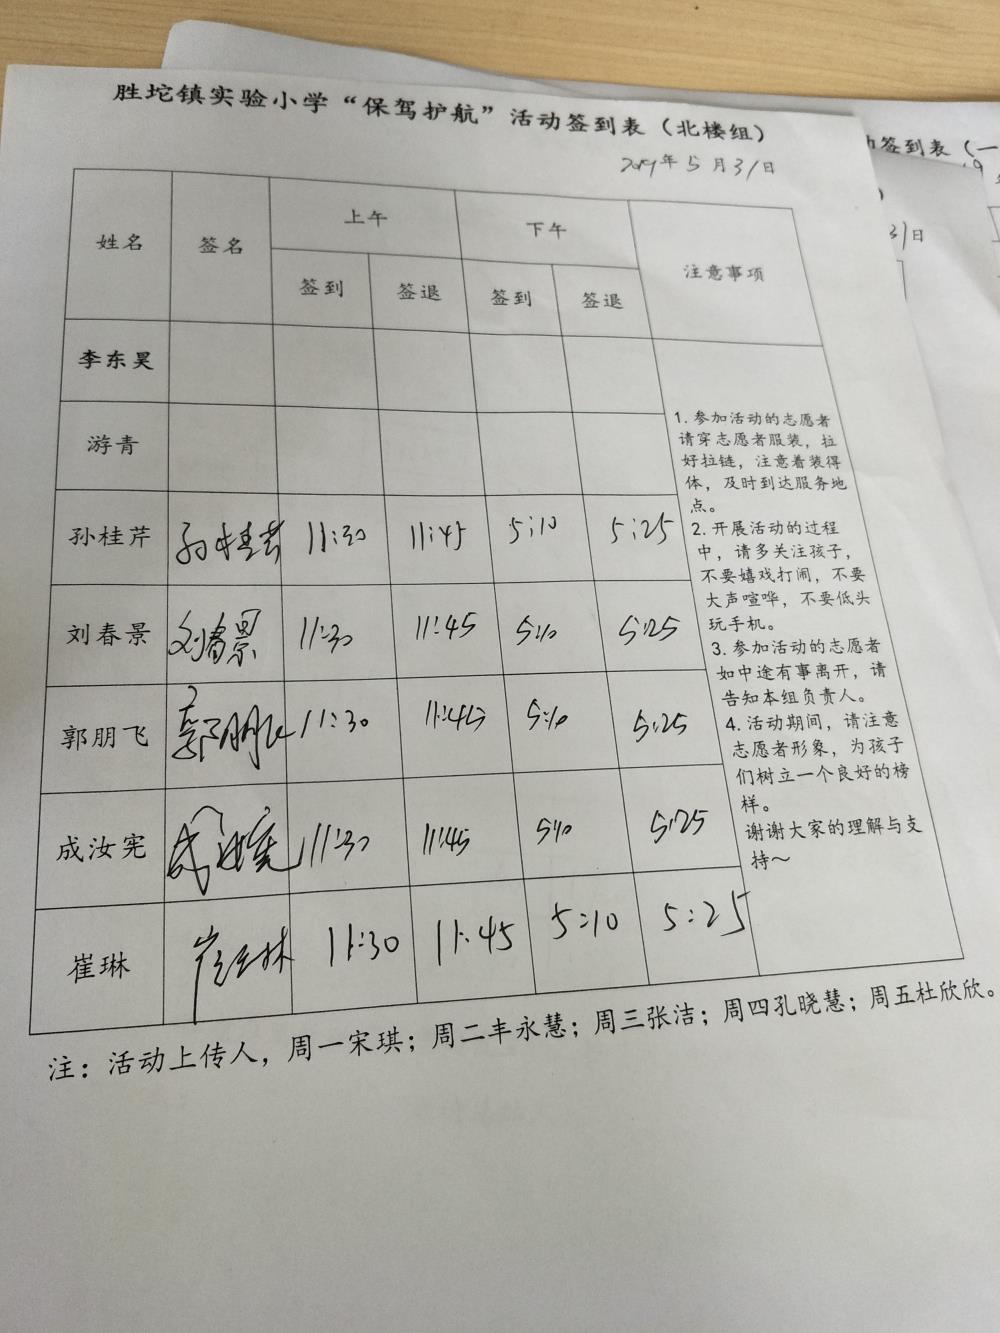 胜坨镇实验小学“保驾护航”活动签到表（北楼组）
2019年 5 月 31 日
姓名 签名 上午 下午 注意事项
签到 签退 签到 签退
李东昊
游青
孙桂芹 孙桂芹 11:30 11:45 5:10 5:25
刘春景 刘春景 11:30 11:45 5:10 5:25
郭朋飞 郭朋飞 11:30 11:45 5:10 5:25
成汝宪 成汝宪 11:30 11:45 5:10 5:25
崔琳 崔琳 11:30 11:45 5:10 5:25
1. 参加活动的志愿者
请穿志愿者服装，拉
好拉链，注意着装得
体，及时到达服务地
点。
2. 开展活动的过程
中，请多关注孩子，
不要嬉戏打闹，不要
大声喧哗，不要低头
玩手机。
3. 参加活动的志愿者
如中途有事离开，请
告知本组负责人。
4. 活动期间，请注意
志愿者形象，为孩子
们树立一个良好的榜
样。
谢谢大家的理解与支
持～
注：活动上传人，周一宋琪；周二丰永慧；周三张洁；周四孔晓慧；周五杜欣欣。
动签到表（一
31日